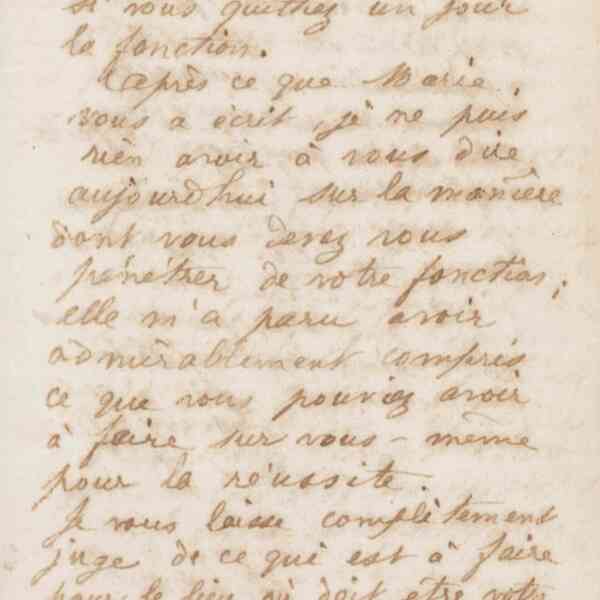 si vous quittiez un jour
la fonction.
Après ce que Marie
vous a écrit, je ne puis
rien avoir à vous dire
aujourd'hui sur la manière
dont vous devez vous
pénétrer de votre fonction ;
elle m'a paru avoir
admirablement compris
ce que vous pouviez avoir
à faire sur vous-même
pour la réussite.
Je vous laisse complètement
juge de ce qui est à faire
pour le lieu où doit être votre